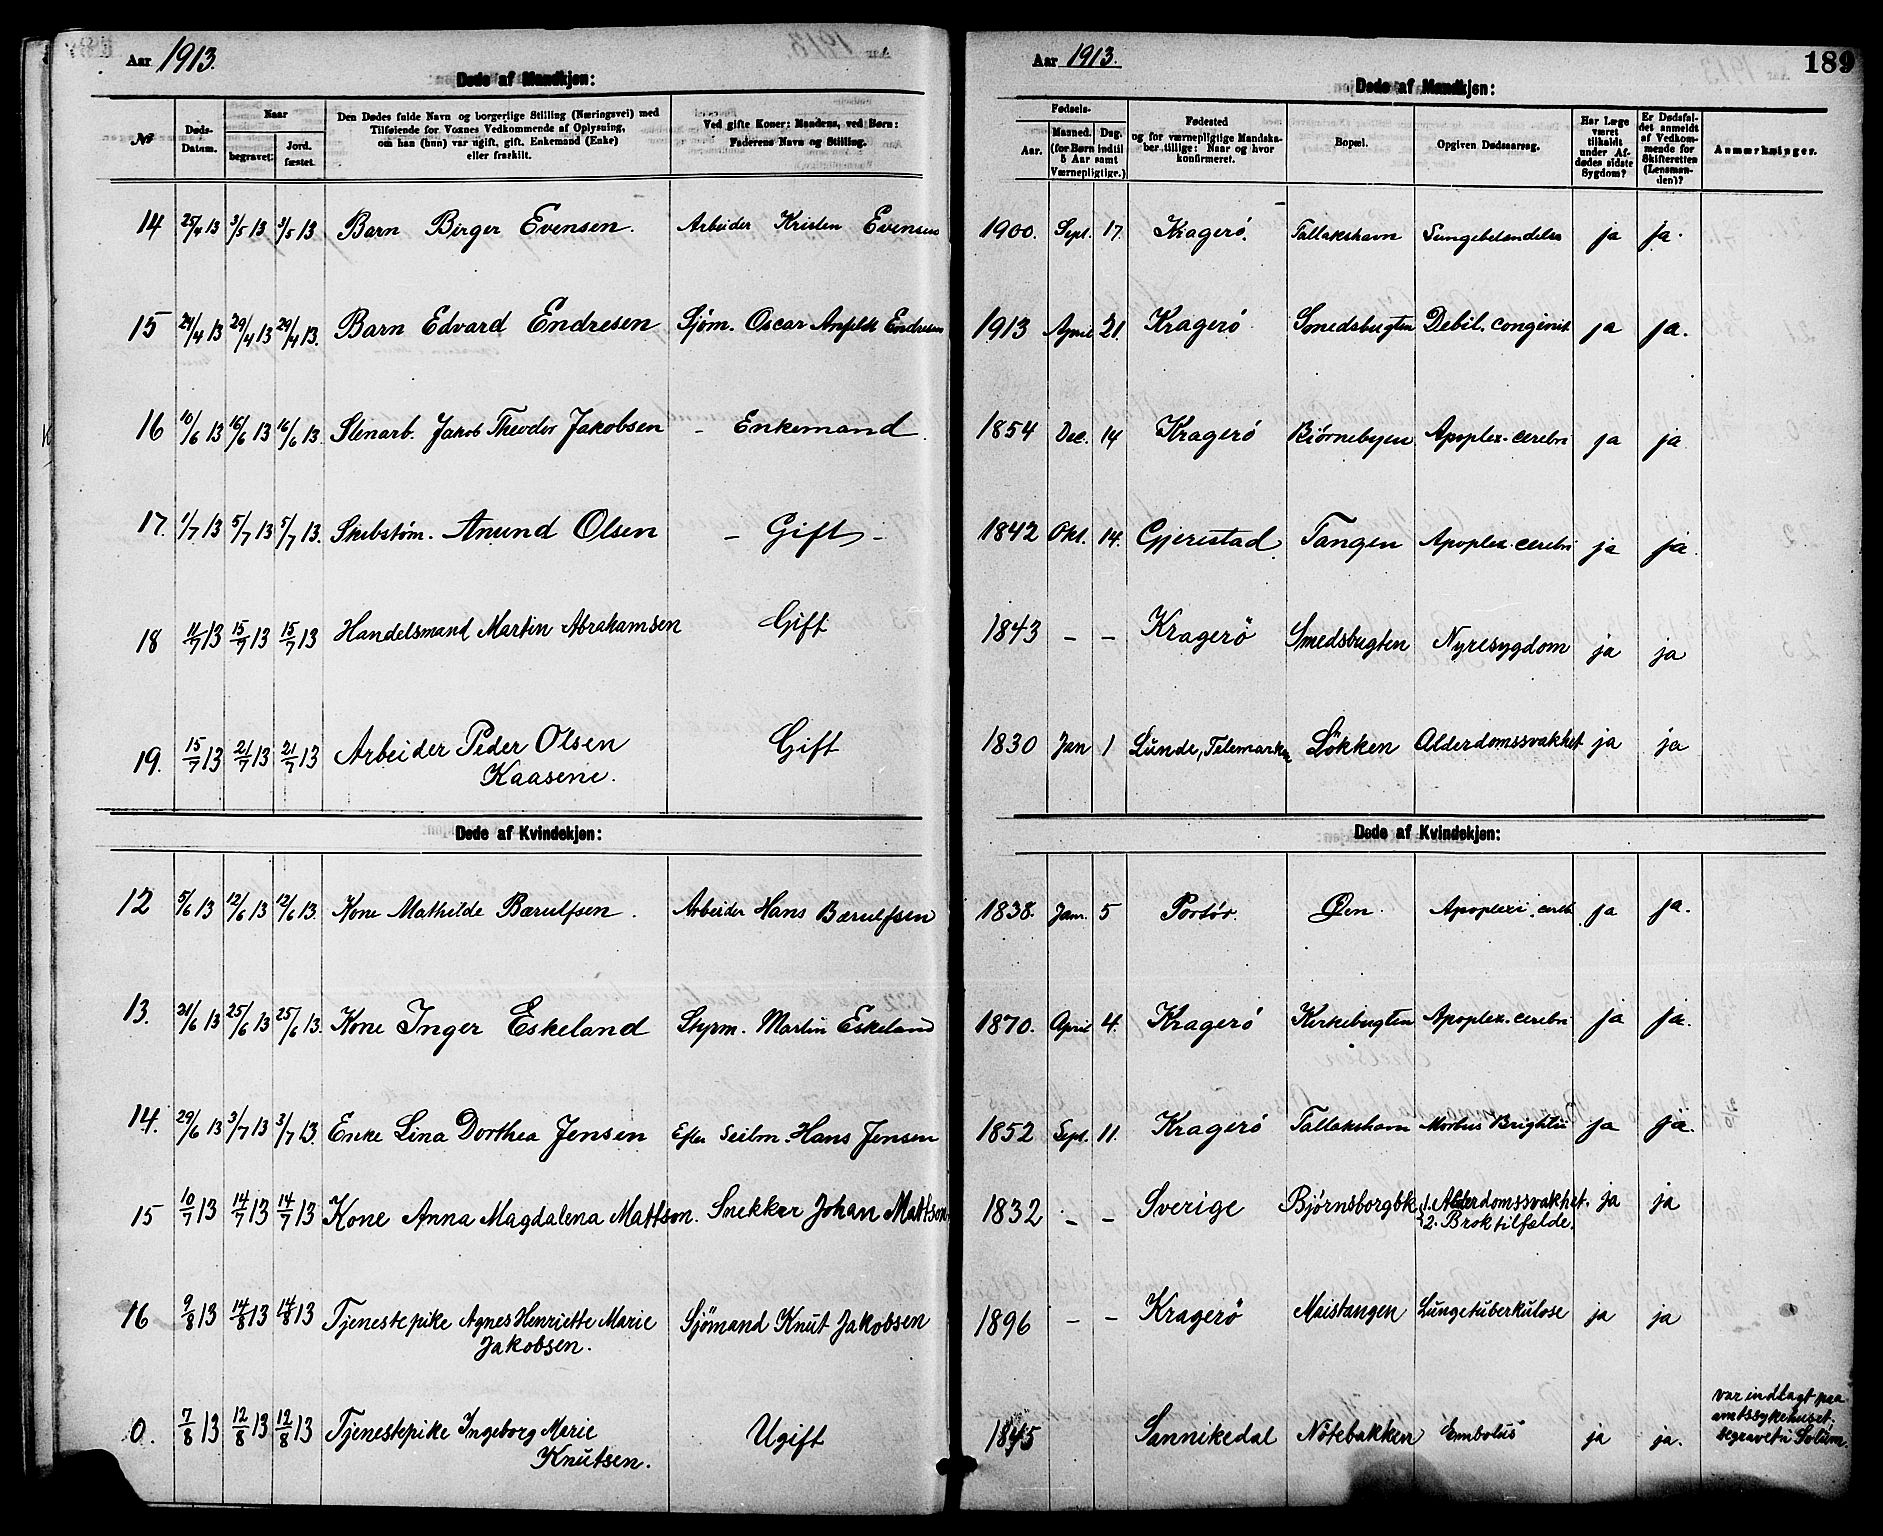 Aar 1913.
Døde af Mandkjøn:
№
Døds-Datum.
Naar
begravet:
Jord.fæstet.
Den Dødes fulde Navn og borgerlige Stilling (Næringsvei) med
Tilføiende for Voxnes Vedkommende af Oplysning,
om han (hun) var ugift, gift, Enkemand (Enke)
eller fraskilt.
Ved gifte Koner: Mandens, ved Børn:
Faderens Navn og Stilling.
14 25/4 13 3/5 13 3/5 13 Barn Birger Evensen. Arbeider Kristen Evensen
15 24/4 13 29/4 13 29/4 13. Barn Edvard Endresen Sjøm. Oscar Endresen
16 10/6 13 16/6 13 16/6 13. Stenarb. Jakob Theodor Jakobsen - Enkemand.
17. 1/7 13 5/7 13 5/7 13. Skibstøm. Anund Olsen - Gift -
18 11/7 13 15/7 13 15/7 13 Handelsmand Martin Abrahamsen Gift
19. 15/7 13 21/7 13 21/7 13 Arbeider Peder Olsen Gift
Kaasene.
Døde af Kvindekjøn:
12 5/6 13 12/6 13 12/6 13. Kone Mathilde Bærulfsen. Arbeider Hans Bærulfsen
13. 21/6 13 25/6 13 25/6 13. Kone Inger Eskeland Styrm. Martin Eskeland
14. 29/6 13 3/7 13 3/7 13. Enke Lina Dorthea Jensen Efter Seilm. Hans Jensen
15 10/7 13 14/7 13 14/7 13 Kone Anna Magdalena Mattson. Snekker Johan Mattson
16 9/8 13 14/8 13 14/8 13 Tjenestepike Agnes Henriette Marie Sjömand Knut Jakobsen
Jakobsen.
0. 7/8 13 12/8 13 12/8 13 Tjenestepike Ingeborg Marie Ugift
Knutsen.
Aar 1913.
189
Døde af Mandkjøn:
Fødsels-
Aar.
Maaned. Dag.
(for Børn indtil
5 Aar samt
Værnepligtige.)
Fødested
og for værnepligtige Mandska-
ber tillige: Naar og hvor
konfirmeret.
Bopæl.
Opgiven Dødsaarsag.
Har Læge
været
tilkaldt
under Af-
dødes sidste
Sygdom?
Er Dødsfal-
det anmeldt
af Vedkom-
mende for
Skifteretten
(Lensman-
den)?
Anmærkninger.
1900. Sept. 17. Kragerø. Tallakshavn Lungebetændelse ja ja.
1913 April 21. Kragerø Smedsbugten Debil. congenit ja ja.
1854 Dec. 14 Kragerø Bjørnebyen Apoplex. cerebri ja ja
1842 Okt. 14. Gjerestad Tangen Apoplex. cerebri ja ja
1843 - - Kragerö Smedsbugten Nyresygdom ja ja
1830 Jan 1 Lunde, Telemarken Løkken Alderdomssvakhet ja ja
Døde af Kvindekjøn:
1838. Jan. 5 Portør. Øen. Apoplexi. cereb ja ja.
1870. April 4. Kragerø Kirkebugten Apoplex. cerebri ja ja.
1852 Sept. 11. Kragerø Tallakshavn Morbus Brightii ja ja.
1832 - - Sverige Bjørnsborgbk. 1. Alderdomssvakhet. ja ja
2. Broktilfælde.
1896 - - Kragerö Maistangen Lungetuberkulose ja ja
1845 Sannikedal Nötebakken Embolus ja ja.
var indlagt paa
amtssykehuset.
begravet i Solum.